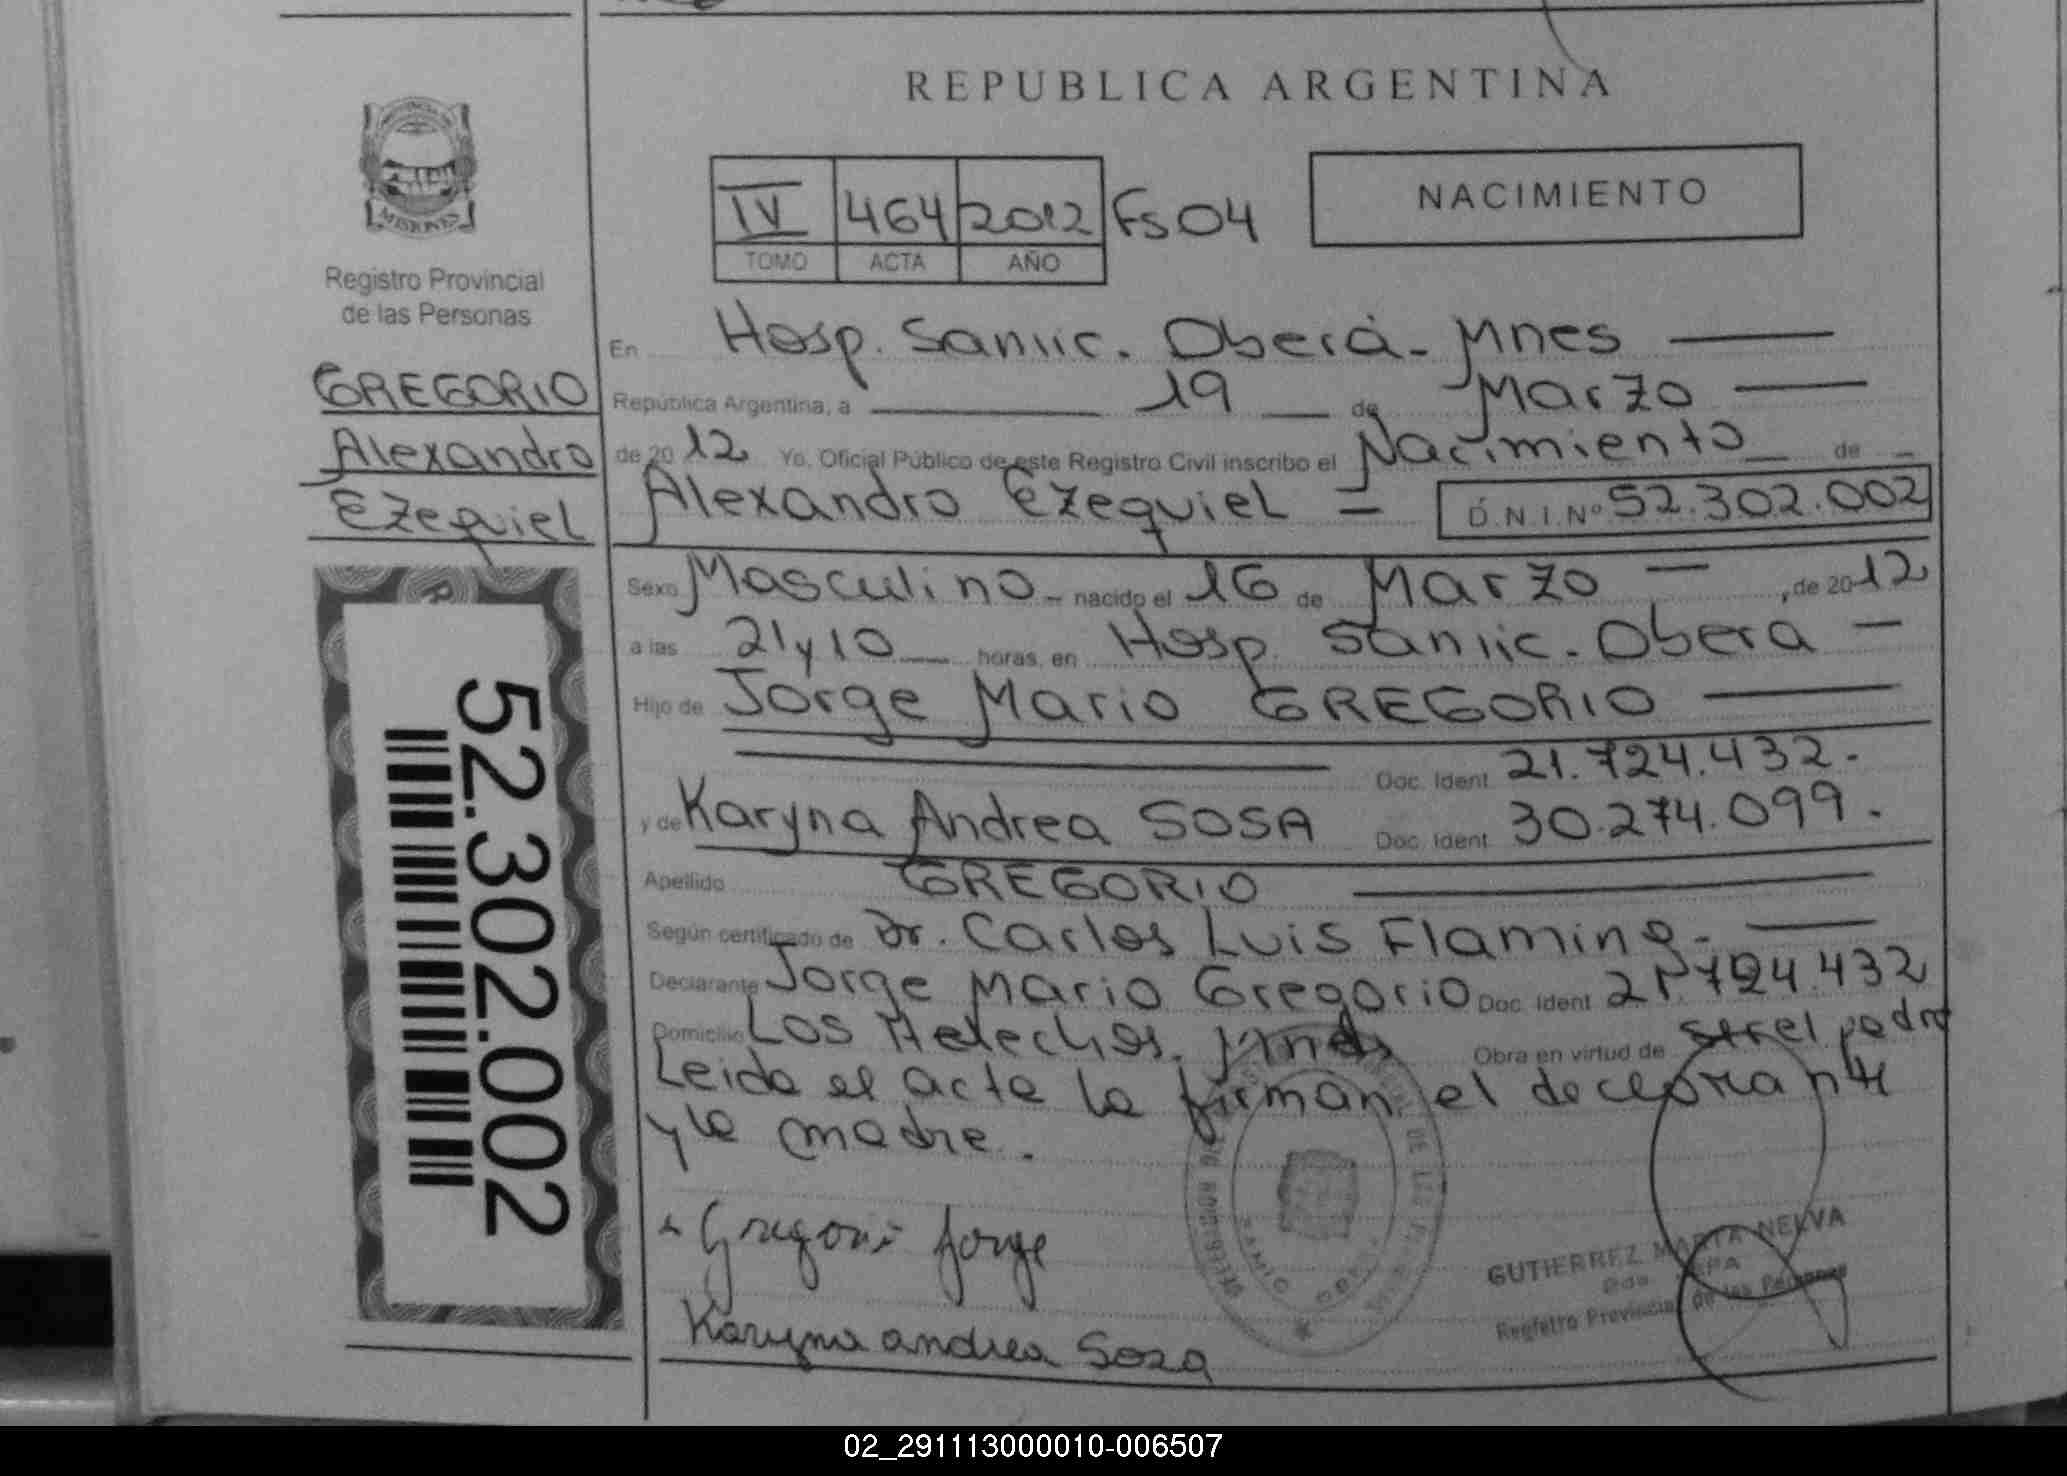 REPUBLICA ARGENTINA
PROVINCIA
MISIONES
Registro Provincial
de las Personas
IV 464 2012 Fs 04
TOMO ACTA AÑO
NACIMIENTO
GREGORIO
Alexandro
Ezequiel
52.302.002
En Hosp. Samic. Oberá - Mnes
República Argentina, a 19 de Marzo
de 2012 Yo, Oficial Público de este Registro Civil inscribo el Nacimiento de
Alexandro Ezequiel = D.N.I.Nº 52.302.002
Sexo Masculino nacido el 16 de Marzo, de 2012
a las 21 y 10 horas, en Hosp. Samic. Obera
Hijo de Jorge Mario GREGORIO
Doc. Ident 21.724.432.-
y de Karyna Andrea SOSA Doc. Ident 30.274.099.
Apellido GREGORIO
Según certificado de Dr. Carlos Luis Flamino
Declarante Jorge Mario Gregorio Doc. Ident 21.724.432
Domicilio Los Helechos. Mnes Obra en virtud de ser el padre
Leida el acta la firman el declarante
y la madre.
Gregorio Jorge
Karyna andrea Sosa
GUTIERREZ MARITA NELVA
Registro Provincial de las Personas
02_291113000010-006507